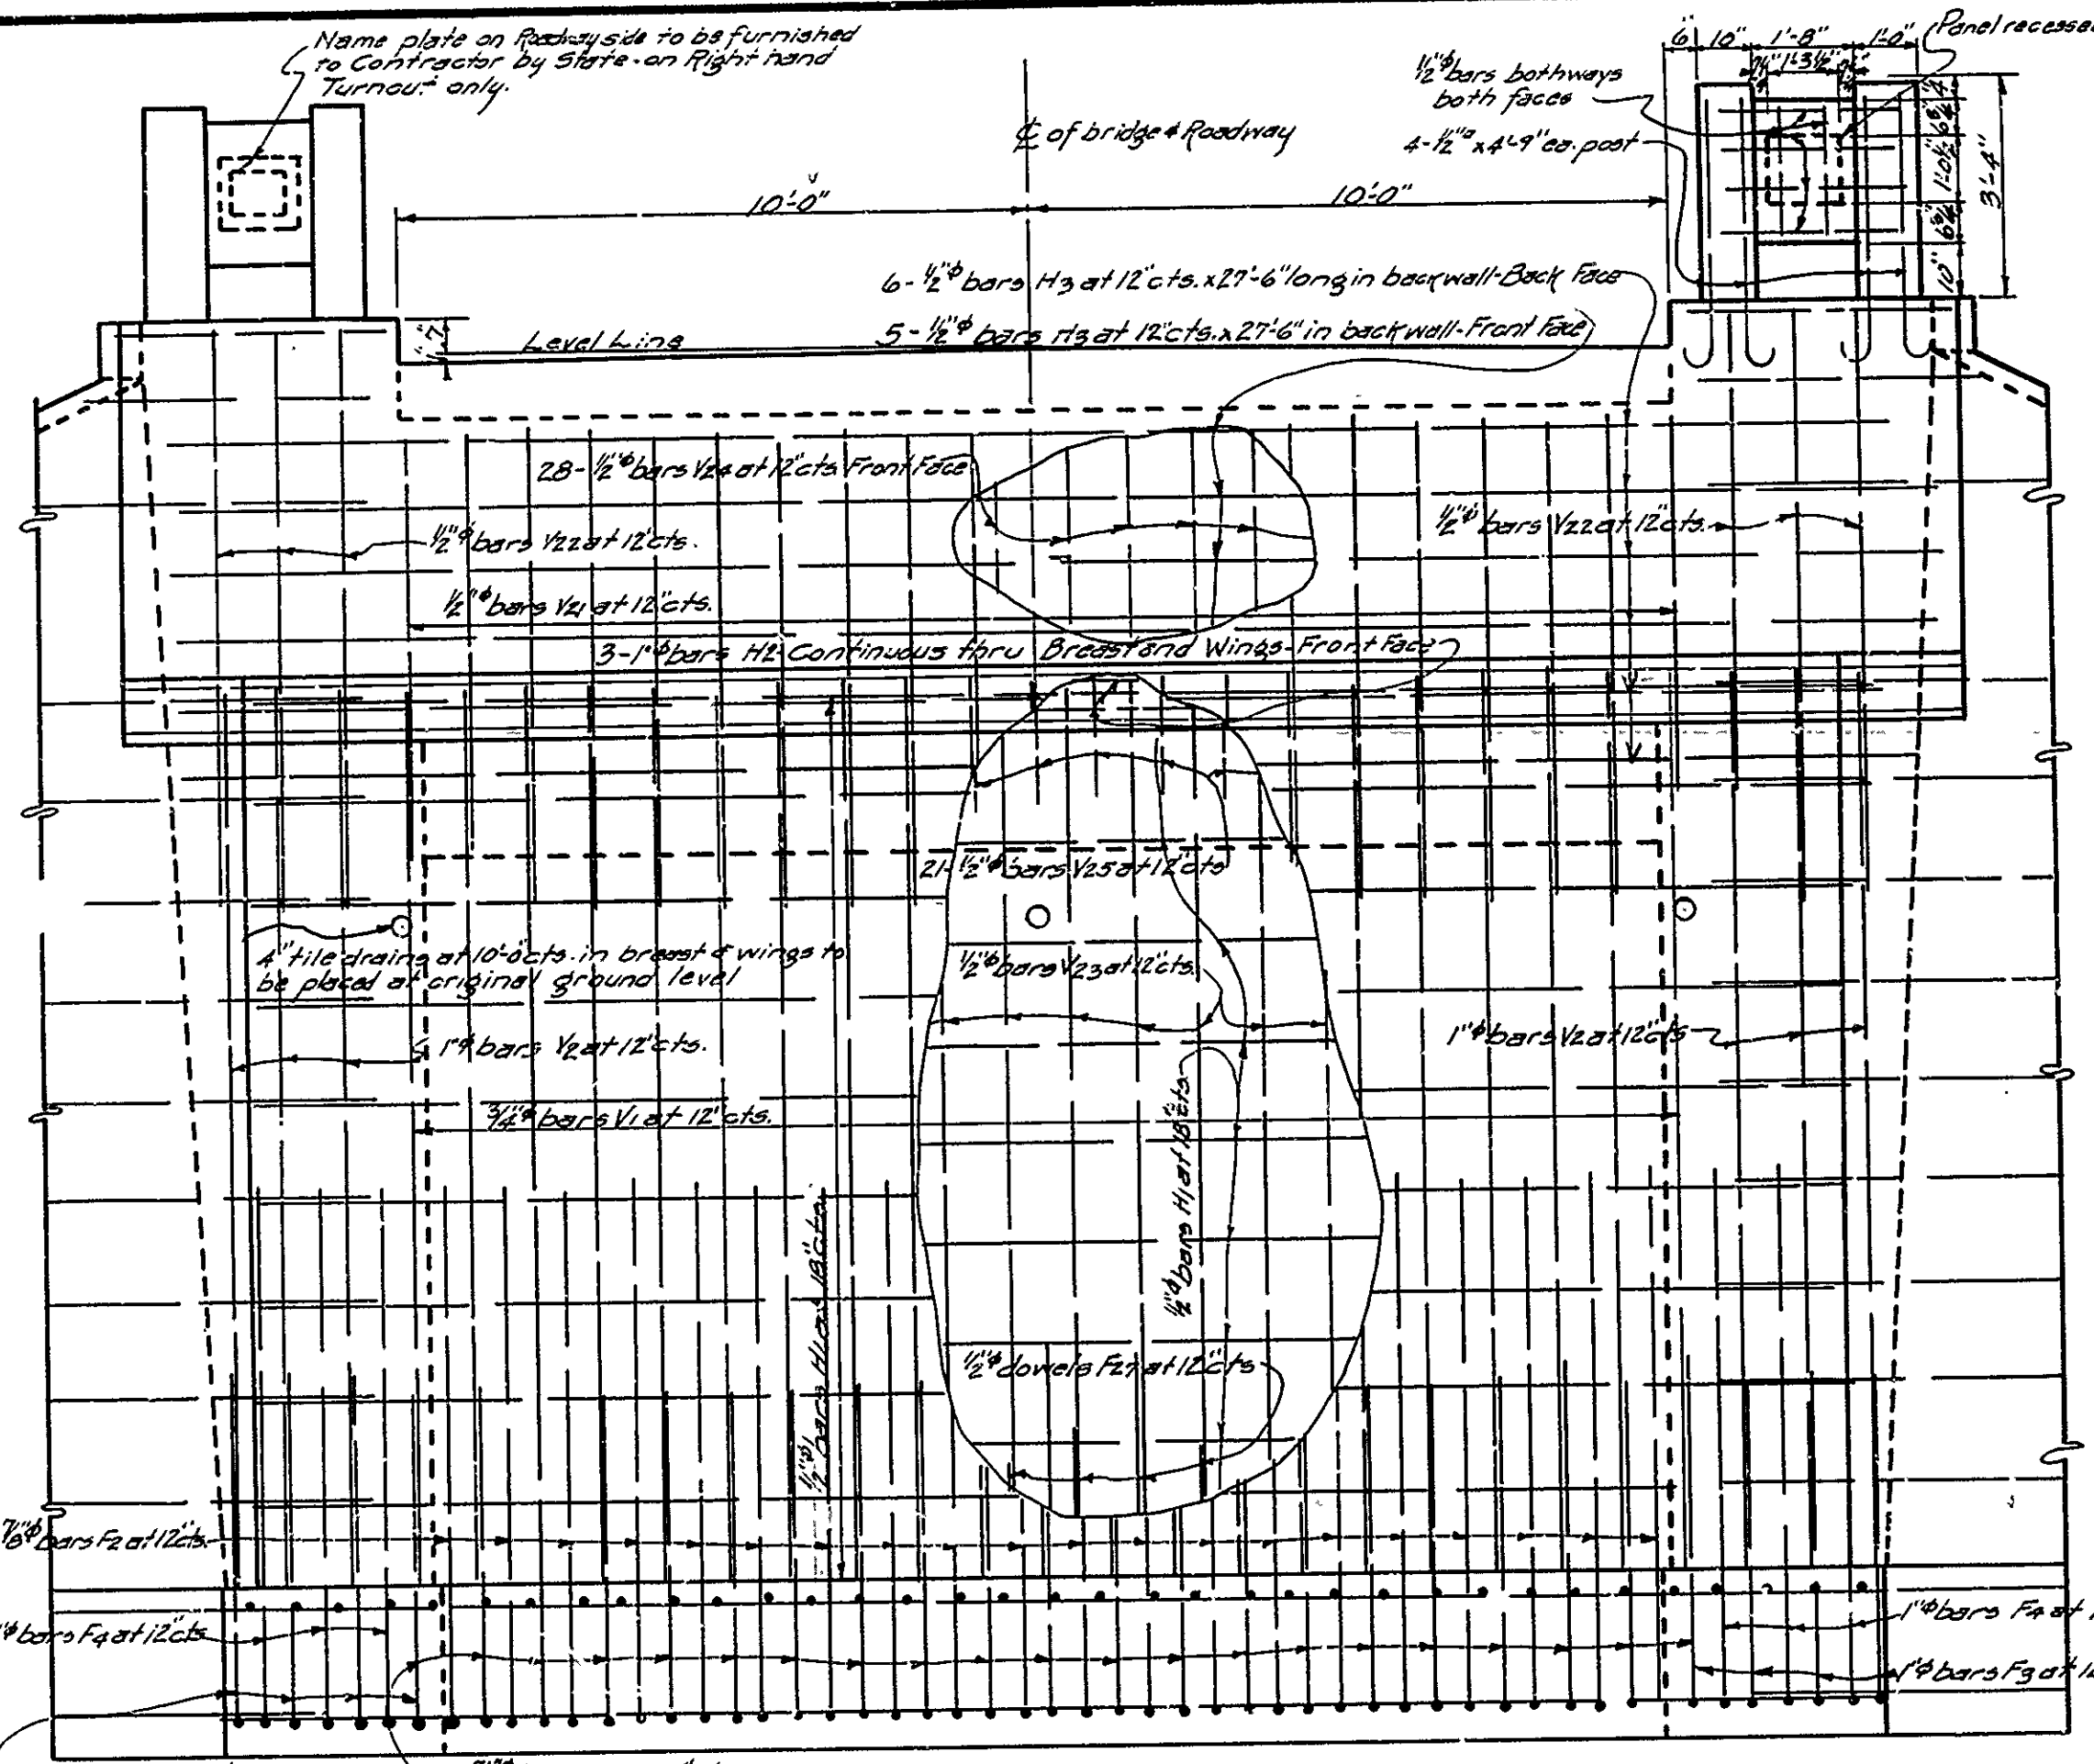 Name plate on Roadway side to be furnished
to Contractor by State - on Right hand
Turnout only.
6"
10"
1'-8"
1'-0"
Panel recessed
1'-3½"
½"ϕ bars bothways
both faces
4-½"▫ x 4'-9" ea. post
3'-4"
1'-0½"
10"
℄ of bridge & Roadway
10'-0"
10'-0"
6-½"ϕ bars H3 at 12"cts. x 27'-6" long in backwall-Back Face
5-½"ϕ bars H3 at 12"cts. x 27'-6" in backwall-Front Face
Level Line
28-½"ϕ bars V24 at 12"cts Front Face
½"ϕ bars V22 at 12"cts.
½"ϕ bars V22 at 12"cts.
½"ϕ bars V21 at 12"cts.
3-1"ϕ bars H2 Continuous thru Breast and Wings-Front Face
21-½"ϕ bars V25 at 12"cts
4" tile drains at 10'-0"cts. in breast & wings to
be placed at original ground level
½"ϕ bars V23 at 12"cts.
1"ϕ bars V2 at 12"cts.
1"ϕ bars V2 at 12"cts
¾"ϕ bars V1 at 12"cts.
½"ϕ bars H1 at 18"cts.
½"ϕ bars H1 at 18"cts.
½"ϕ dowels F27 at 12"cts
⅞"ϕ bars F2 at 12"cts.
"ϕ bars F4 at 12"cts
1"ϕ bars F4 at 1
1"ϕ bars F3 at 12